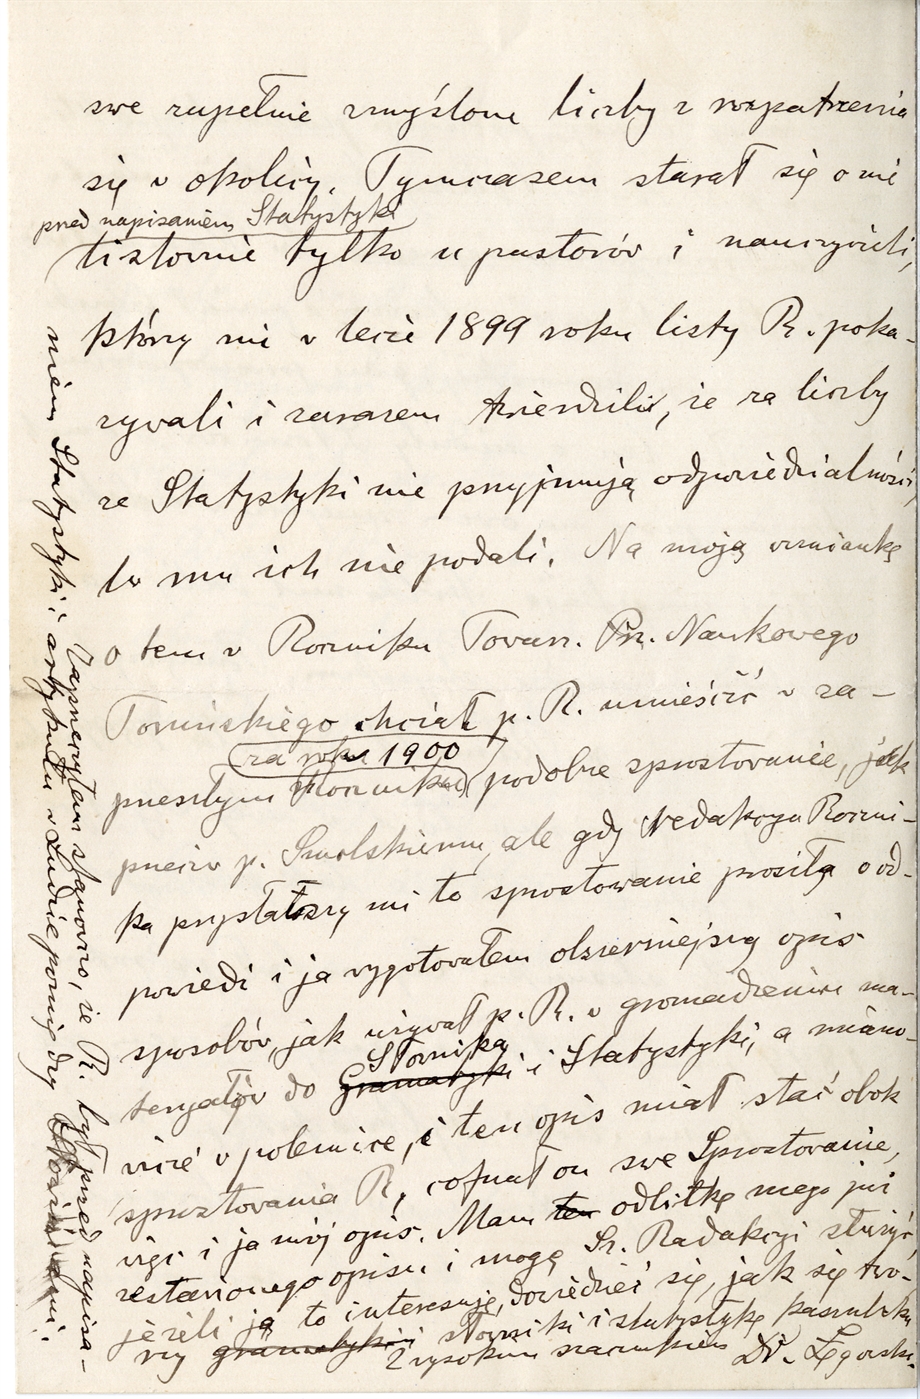 swe zupełnie zmyślone liczby z rozpatrzenia
się w okolicy. Tymczasem starał się o nie
przed napisaniem Statystyki
listownie tylko u pastorów i nauczycieli,
którzy mi w lecie 1899 roku listy R. poka-
zywali i zarazem twierdzili, że za liczby
ze Statystyki nie przyjmują odpowiedzialności,
bo mu ich nie podali. Na moją wzmiankę
o tem w Roczniku Towarz. Prz. Naukowego
Toruńskiego chciał p. R. umieścić w za-
za rok 1900
przeszłym Roczniku podobne sprostowanie, jak
przeciw p. Smolskiemu, ale gdy Redakcya Roczni-
ka przysławszy mi to sprostowanie prosiła o od-
powiedź i ja wygotowałem obszerniejszy opis
sposobów, jak używał p. R. w gromadzeniu ma-
Słownika
teryałów do Gramatyki i Statystyki, a miano-
wicie w polemice, i ten opis miał stać obok
sprostowania R, cofnął on swe Sprostowanie,
więc i ja mój opis. Mam ten odbitkę mego już
zestawionego opisu i mogę Sz. Redakcyi służyć,
jeżeli ją to interesuje, dowiedzieć się, jak się two-
rzy gramatyki i słowniki i statystykę kaszubską
Z wysokim szacunkiem Dr. Łęgowski.
Zaprzeczam stanowczo, że R. był przed napisa-
niem Statystyki i artykułu w Ludzie pomiędzy